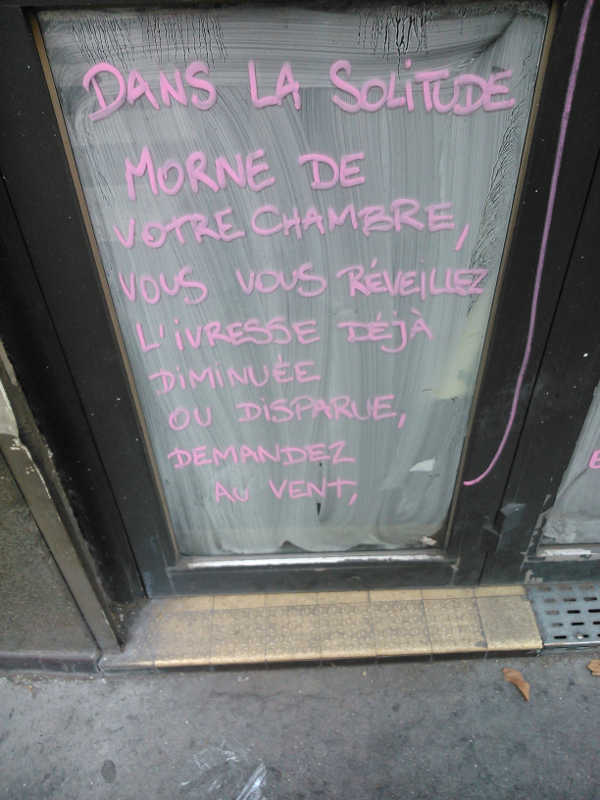 DANS LA SOLITUDE
MORNE DE
VOTRE CHAMBRE,
VOUS VOUS RÉVEILLEZ
L'IVRESSE DÉJÀ
DIMINUÉE
OU DISPARUE,
DEMANDEZ
AU VENT,